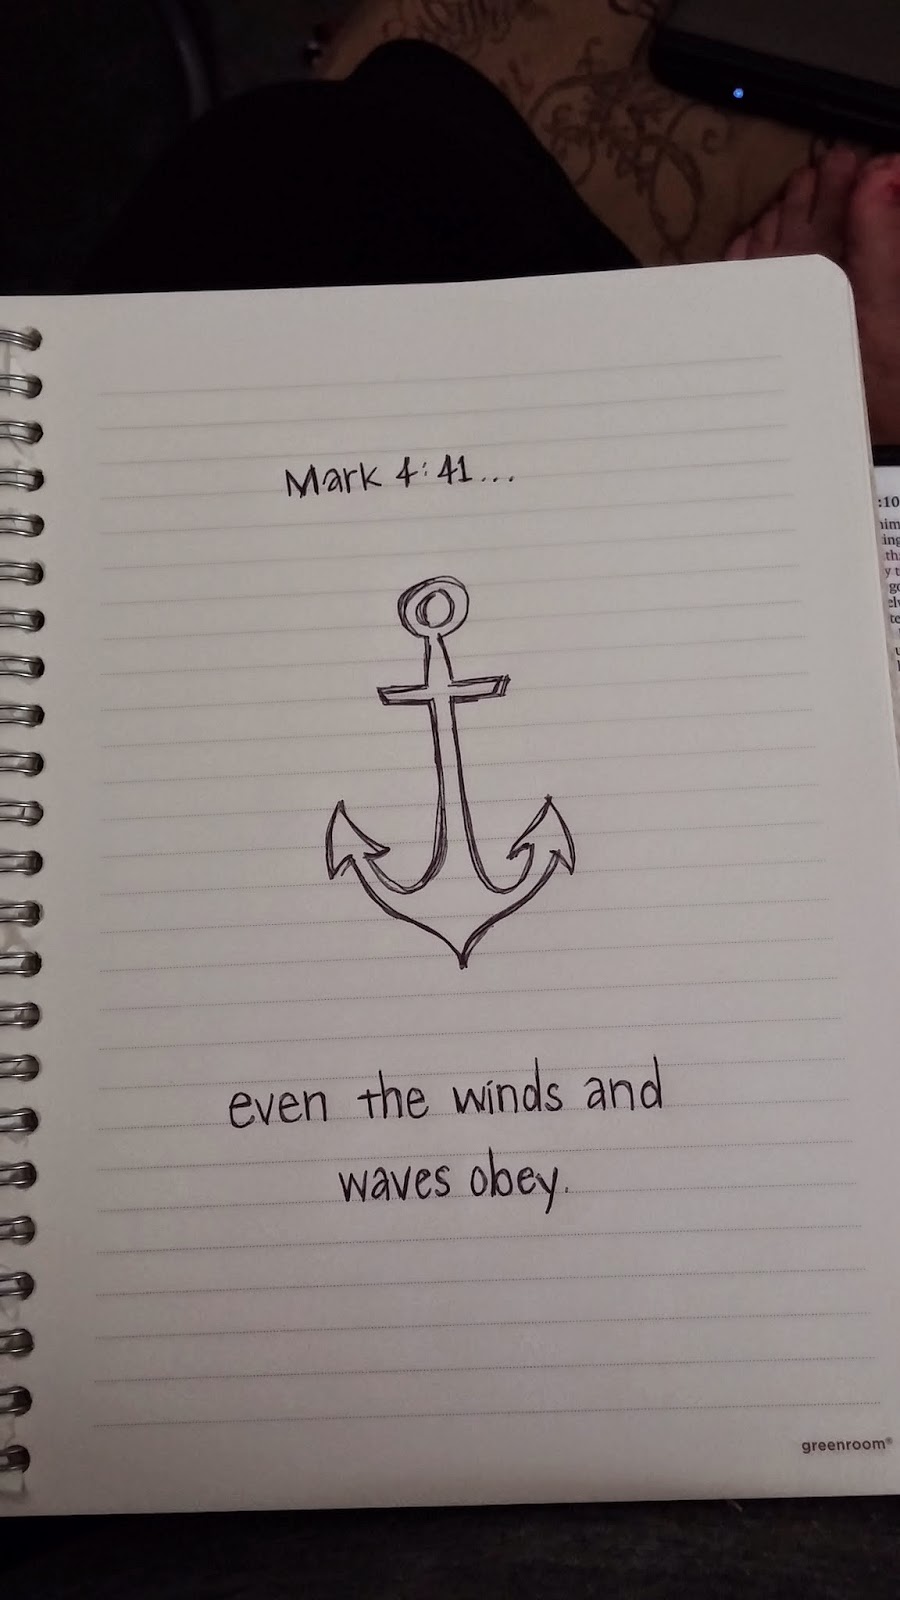 Mark 4:41...
even the winds and
waves obey.
greenroom®
:10